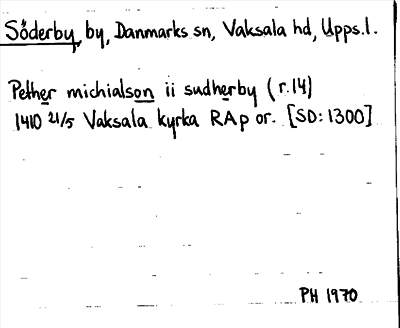 Söderby, by, Danmarks sn, Vaksala hd, Upps.l.
Pether michialson ii sudherby (r.14)
1410 21/5 Vaksala kyrka RAp or. [SD:1300]
PH 1970